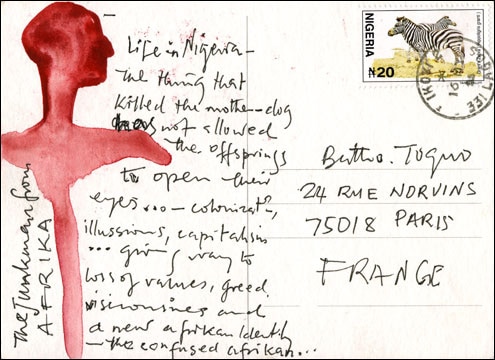 Life in Nigeria -
The thing that
killed the mother-dog
has not allowed
the offsprings
to open their
eyes... - colonization,
illussions, capitalism
... giving way to
loss of values, greed,
visiousness and
a new afrikan Identity
- the confused afrikan...
The Junkman from
AFRIKA
NIGERIA
₦20
TIE LAG
Bathro. Toguo
24 RUE NORVINS
75018 PARIS
FRANCE